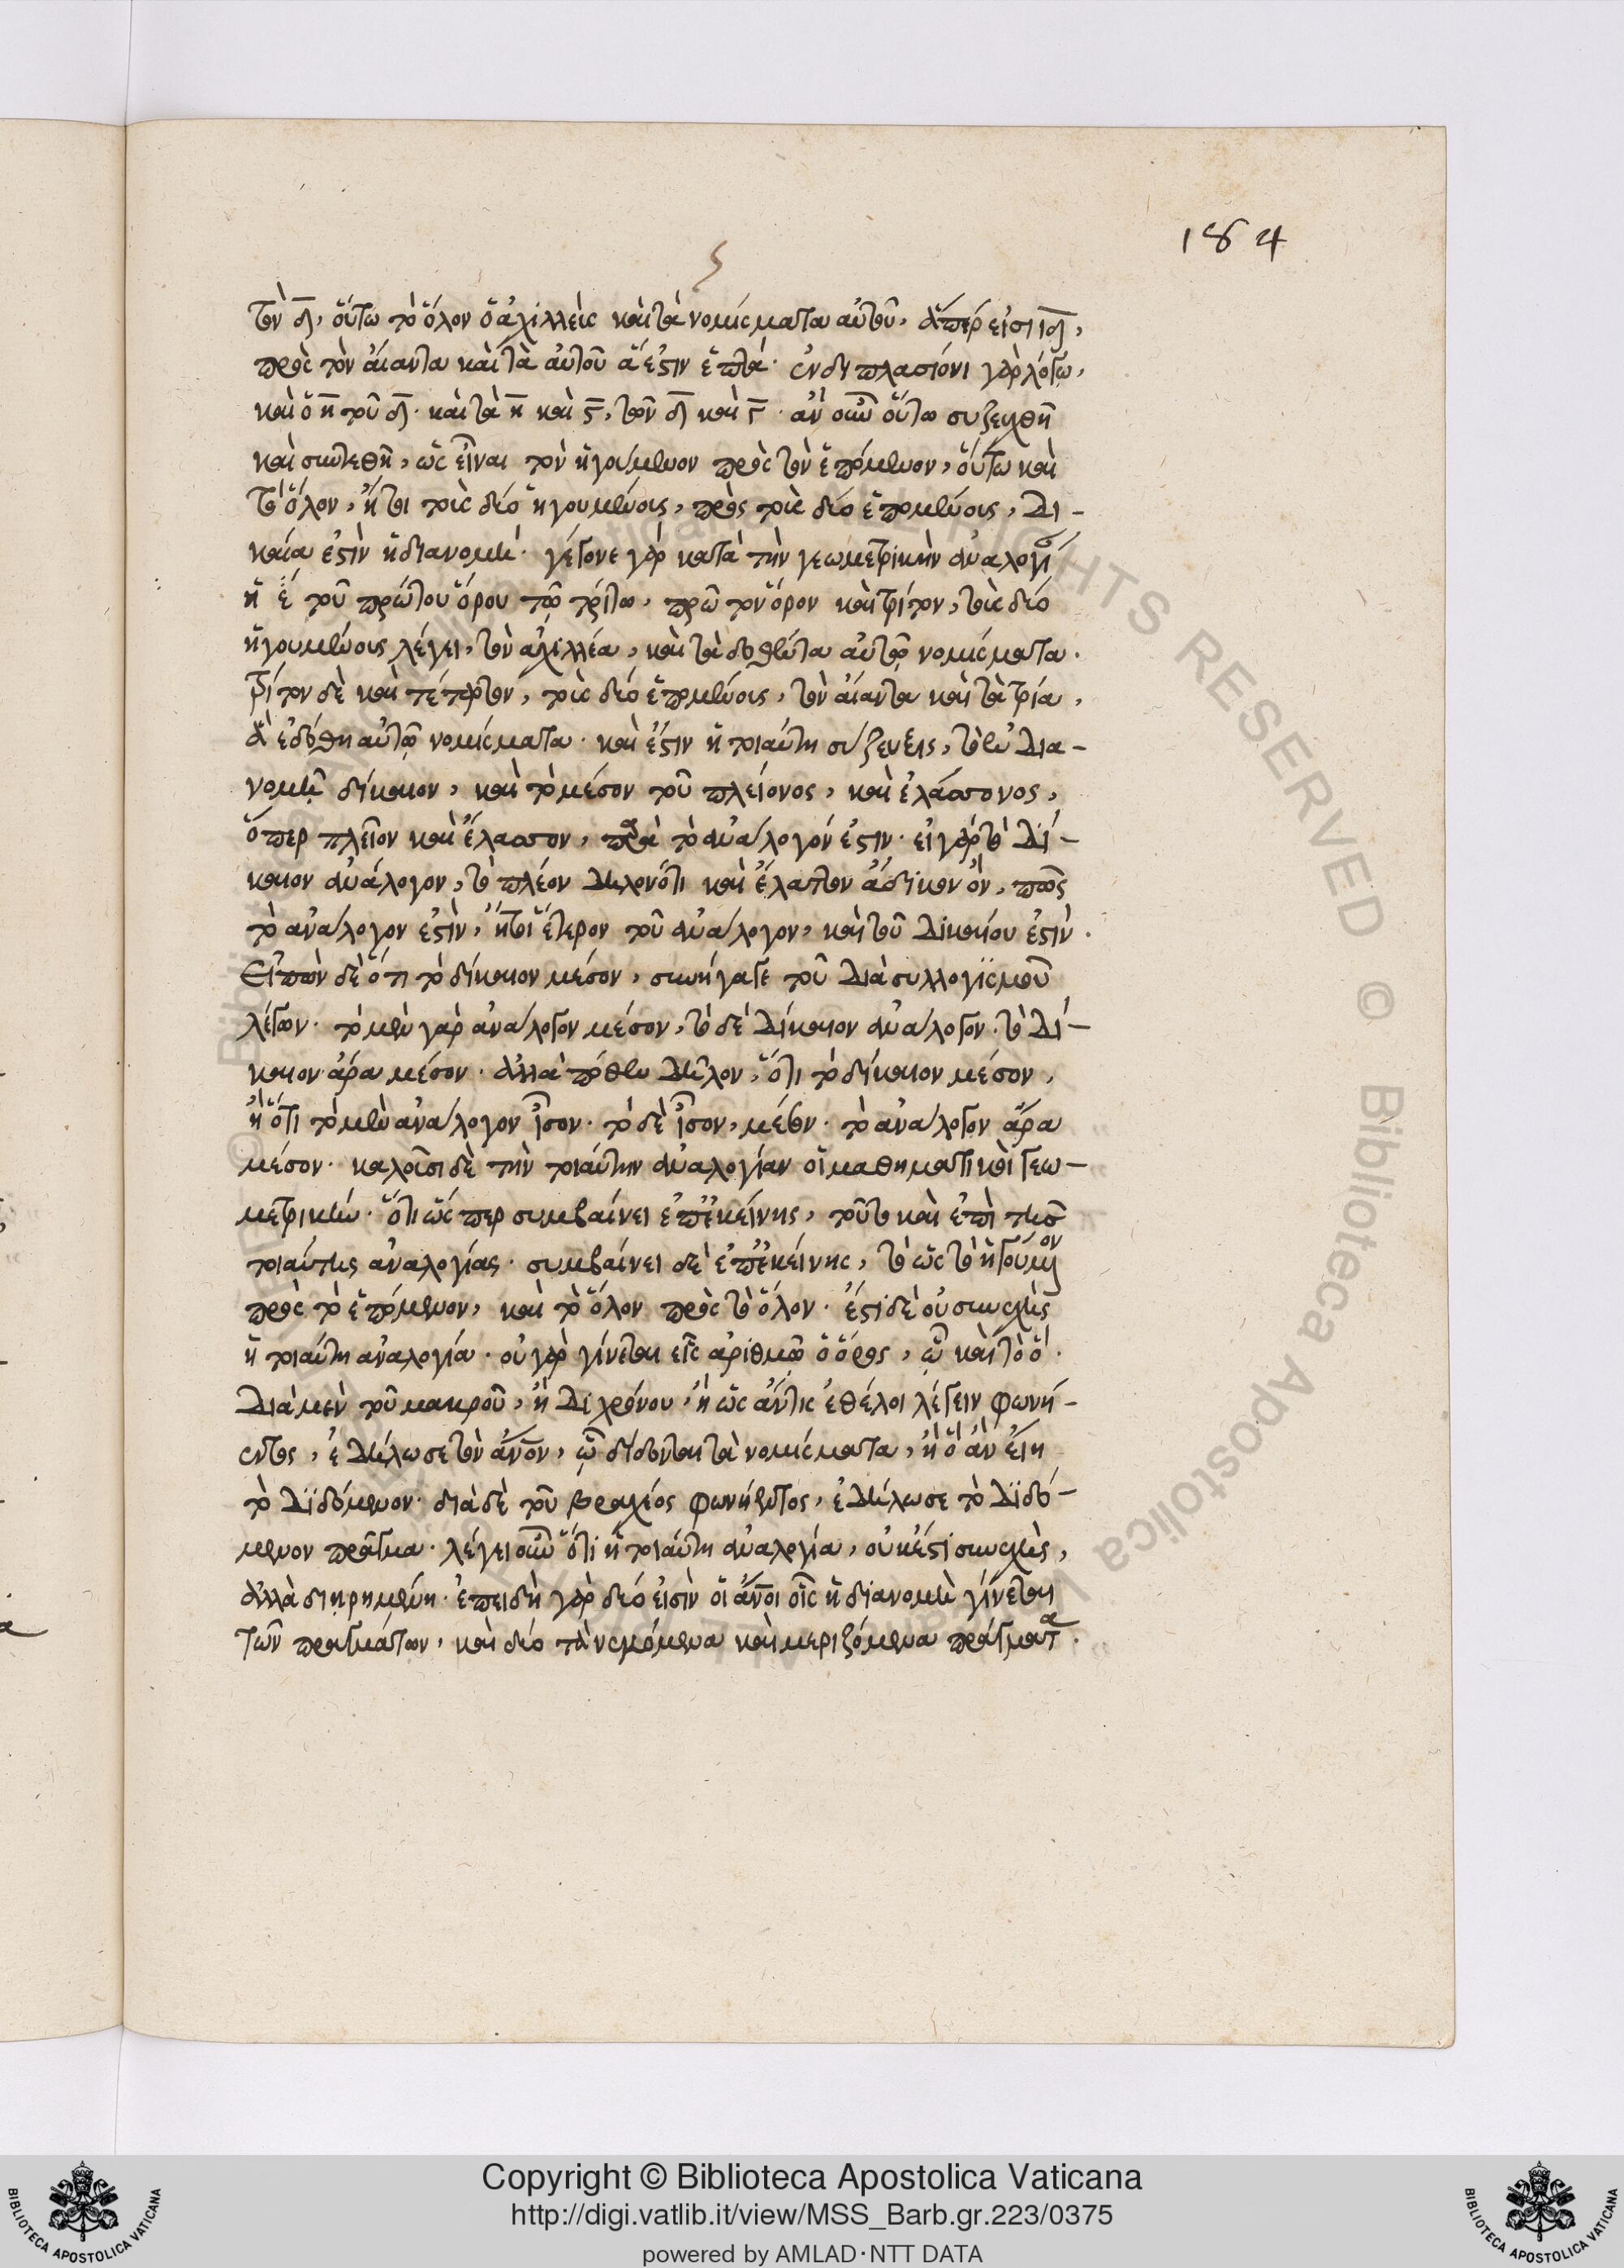 184
τὸν δ̅, οὕτω τὸ ὅλον ὁ ἀχιλλεὺς καὶ τὰ νομίσματα αὐτοῦ, ἅπερ εἰσὶ ιδ̅,
πρὸς τὸν αἴαντα καὶ τὰ αὐτοῦ ἅ ἐστιν ἑπτά. ἐν διπλασίονι γὰρ λόγω,
καὶ ὁ η̅ τοῦ δ̅. καὶ τὰ η̅ καὶ ϛ̅, τῶν δ̅ καὶ γ̅. ἂν οὖν οὕτω συζευχθῆ
καὶ συντεθῆ, ὡς εἶναι τὸν ἡγούμενον πρὸς τὸν ἑπόμενον, οὕτω καὶ
τὸ ὅλον, ἤτοι τοὺς δύο ἡγουμένους, πρὸς τοὺς δύο ἑπομένους, δι-
καία ἐστὶν ἡ διανομή. γέγονε γὰρ κατὰ τὴν γεωμετρικὴν ἀναλογί
τοῦ πρώτου ὅρου τῶ τρίτω, πρῶτον ὅρον καὶ τρίτον, τοὺς δύο
ἡγουμένους λέγει, τὸν ἀχιλλέα, καὶ τὰ δοθέντα αὐτῶ νομίσματα.
τρίτον δὲ καὶ τέταρτον, τοὺς δύο ἑπομένους, τὸν αἴαντα καὶ τὰ τρία,
ἃ ἐδόθη αὐτῶ νομίσματα. καὶ ἔστιν ἡ τοιαύτη σύζευξις, τὸ ἐν δια-
νομῆ δίκαιον, καὶ τὸ μέσον τοῦ πλείονος, καὶ ἐλάσσονος,
ὅπερ πλεῖον καὶ ἔλασσον, παρὰ τὸ ἀνάλογόν ἐστιν. εἰ γὰρ τὸ δί-
καιον ἀνάλογον, τὸ πλέον δηλονότι καὶ ἔλαττον ἄδικον ὂν, πῶς
τὸ ἀνάλογον ἐστὶν, ἤτοι ἕτερον τοῦ ἀνάλογον, καὶ τοῦ δικαίου ἐστὶν.
Εἰπὼν δὲ ὅτι τὸ δίκαιον μέσον, συνήγαγε τοῦ διὰ συλλογϊσμοῦ
λέγων. τὸ μὲν γὰρ ἀνάλογον μέσον, τὸ δὲ δίκαιον ἀνάλογον. τὸ δί-
καιον ἄρα μέσον. ἀλλὰ πόθεν δῆλον, ὅτι τὸ δίκαιον μέσον,
ἢ ὅτι τὸ μὲν ἀνάλογον ἶσον. τὸ δὲ ἶσον, μέσον. τὸ ἀνάλογον ἄρα
μέσον. καλοῦσι δὲ τὴν τοιαύτην ἀναλογίαν οἱ μαθηματικοὶ γεω-
μετρικήν. ὅτι ὥσπερ συμβαίνει ἐπ' ἐκείνης, τοῦτο καὶ ἐπὶ τῆς
τοιαύτης ἀναλογίας. συμβαίνει δὲ ἐπ' ἐκείνης, τὸ ὡς τὸ ἡγούμενον
πρὸς τὸ ἑπόμενον, καὶ τὸ ὅλον πρὸς τὸ ὅλον. ἔστι δὲ οὐ συνεχὴς
ἡ τοιαύτη ἀναλογία. οὐ γὰρ γίνεται εἷς ἀριθμῶ ὁ ὅρος, ὧ καὶ τὸ ὅ.
διὰ μὲν τοῦ μακροῦ, ἢ διχρόνου, ἢ ὡς ἄν τις ἐθέλοι λέγειν φωνή-
εντος, ἐδήλωσε τὸν ἄνον, ὧ δίδονται τὰ νομίσματα, ἢ ὃ ἂν εἴη
τὸ δϊδόμενον. διὰ δὲ τοῦ βραχέος φωνήεντος, ἐδήλωσε τὸ δϊδό-
μενον πρᾶγμα. λέγει οὖν ὅτι ἡ τοιαύτη ἀναλογία, οὐκ ἔστι συνεχὴς,
ἀλλὰ διῃρημένη. ἐπειδὴ γὰρ δύο εἰσὶν οἱ ἄνοι οἷς ἡ διανομὴ γίνεται
τῶν πραγμάτων, καὶ δύο τὰ νεμόμενα καὶ μεριζόμενα πράγματα.
Copyright © Biblioteca Apostolica Vaticana
http://digi.vatlib.it/view/MSS_Barb.gr.223/0375
powered by AMLAD·NTT DATA